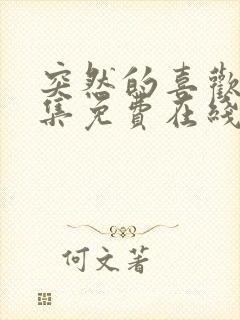 突然的喜歡
集免費在綫
何文著